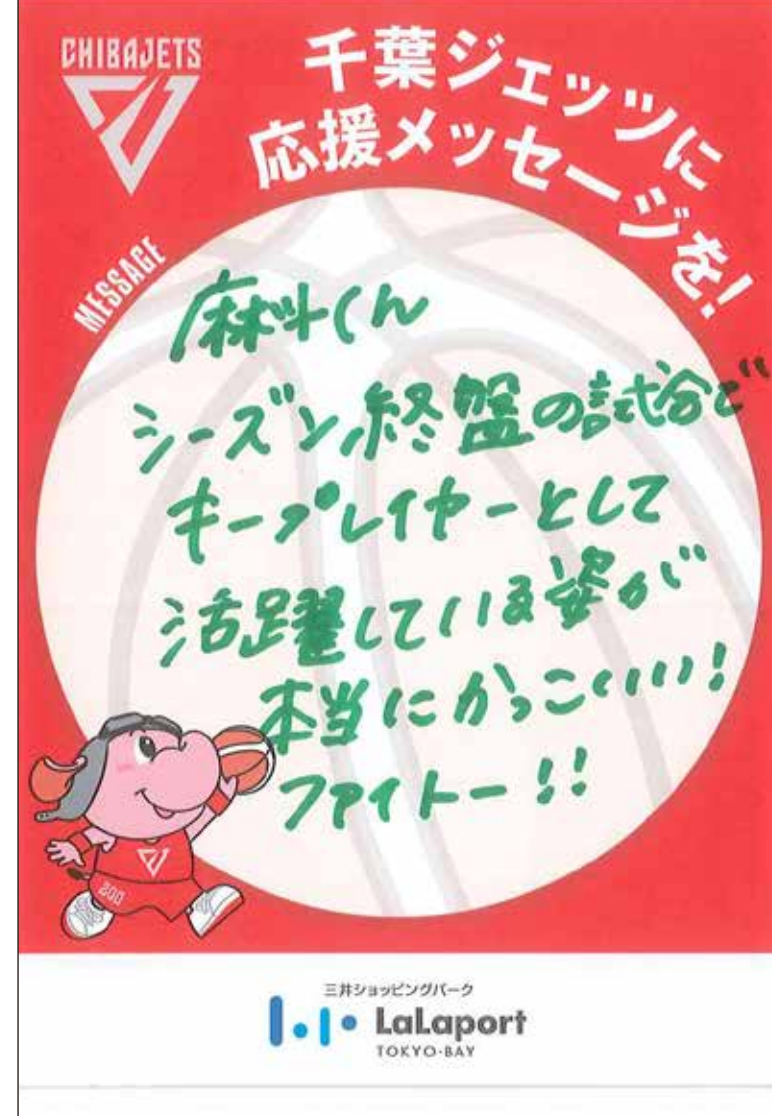 CHIBAJETS
千葉ジェッツに
応援メッセージを!
MESSAGE
麻斗くん
シーズン終盤の試合で
キープレイヤーとして
活躍している姿が
本当にかっこいい!
ファイトー!!
200
三井ショッピングパーク
LaLaport
TOKYO-BAY